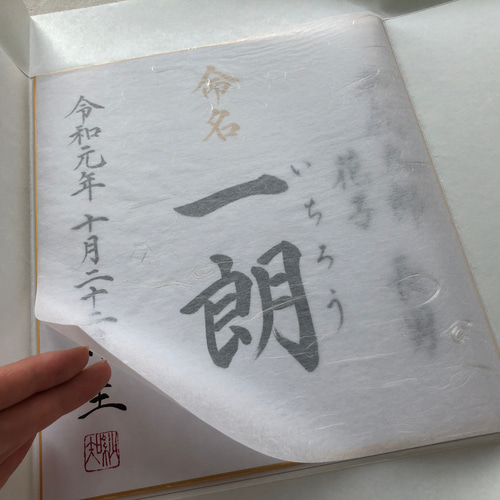 長男
花子
命名
いちろう
一朗
令和元年 十月二十二
生